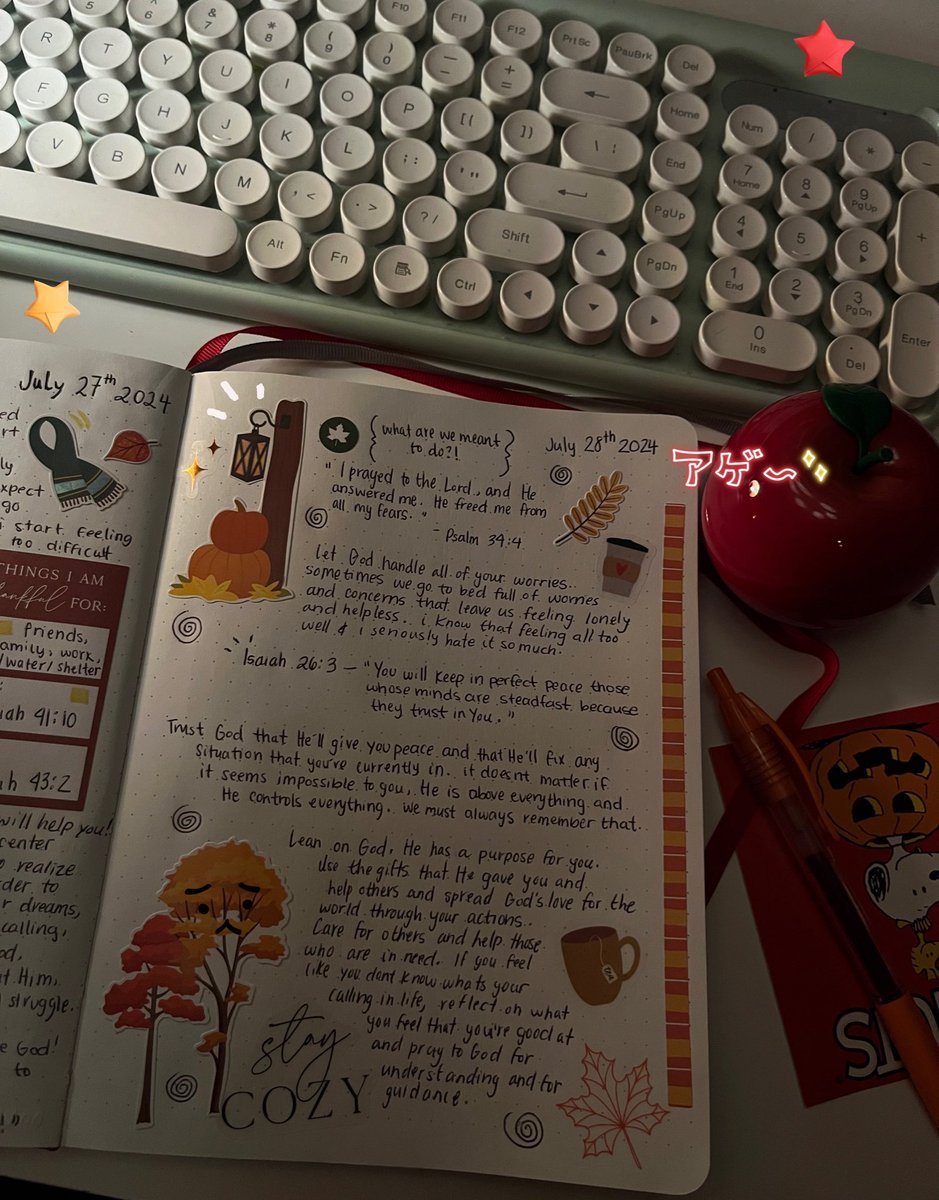 5
6
&
7
*
8
(
9
)
0
—
-
+
=
F10
F11
F12
PrtSc
PauBrk
Del
R
T
Y
U
I
O
P
[{
]}
Home
Num
/
*
-
F
G
H
J
K
L
; :
' "
\ |
End
7
Home
8
9
PgUp
+
V
B
N
M
, <
. >
? /
Shift
PgUp
4
5
6
Alt
Fn
Ctrl
PgDn
1
End
2
3
PgDn
0
Ins
.
Del
Enter
July 27th 2024
start feeling
too difficult
THINGS I AM
thankful FOR:
friends,
family, work,
/water/shelter
Isaiah 41:10
43:2
will help you!
center
realize
order to
dreams,
calling,
Him,
struggle.
God!
to
{ what are we meant
to do?! }
July 28th 2024
"I prayed to the Lord, and He
answered me. He freed me from
all my fears."
- Psalm 34:4
アゲ〜
Let God handle all of your worries..
sometimes we go to bed full of worries
and concerns that leave us feeling lonely
and helpless.. i know that feeling all too
well & i seriously hate it so much.
Isaiah 26:3 — "You will keep in perfect peace those
whose minds are steadfast because
they trust in You."
Trust God that He'll give you peace and that He'll fix any
situation that you're currently in.. it doesnt matter if
it seems impossible to you, He is above everything and
He controls everything. we must always remember that.
Lean on God, He has a purpose for you.
Use the gifts that He gave you and
help others and spread God's love for the
world through your actions..
Care for others and help those
who are in need. If you feel
like you dont know whats your
calling in life, reflect on what
you feel that you're good at
and pray to God for
understanding and for
guidance..
stay
COZY